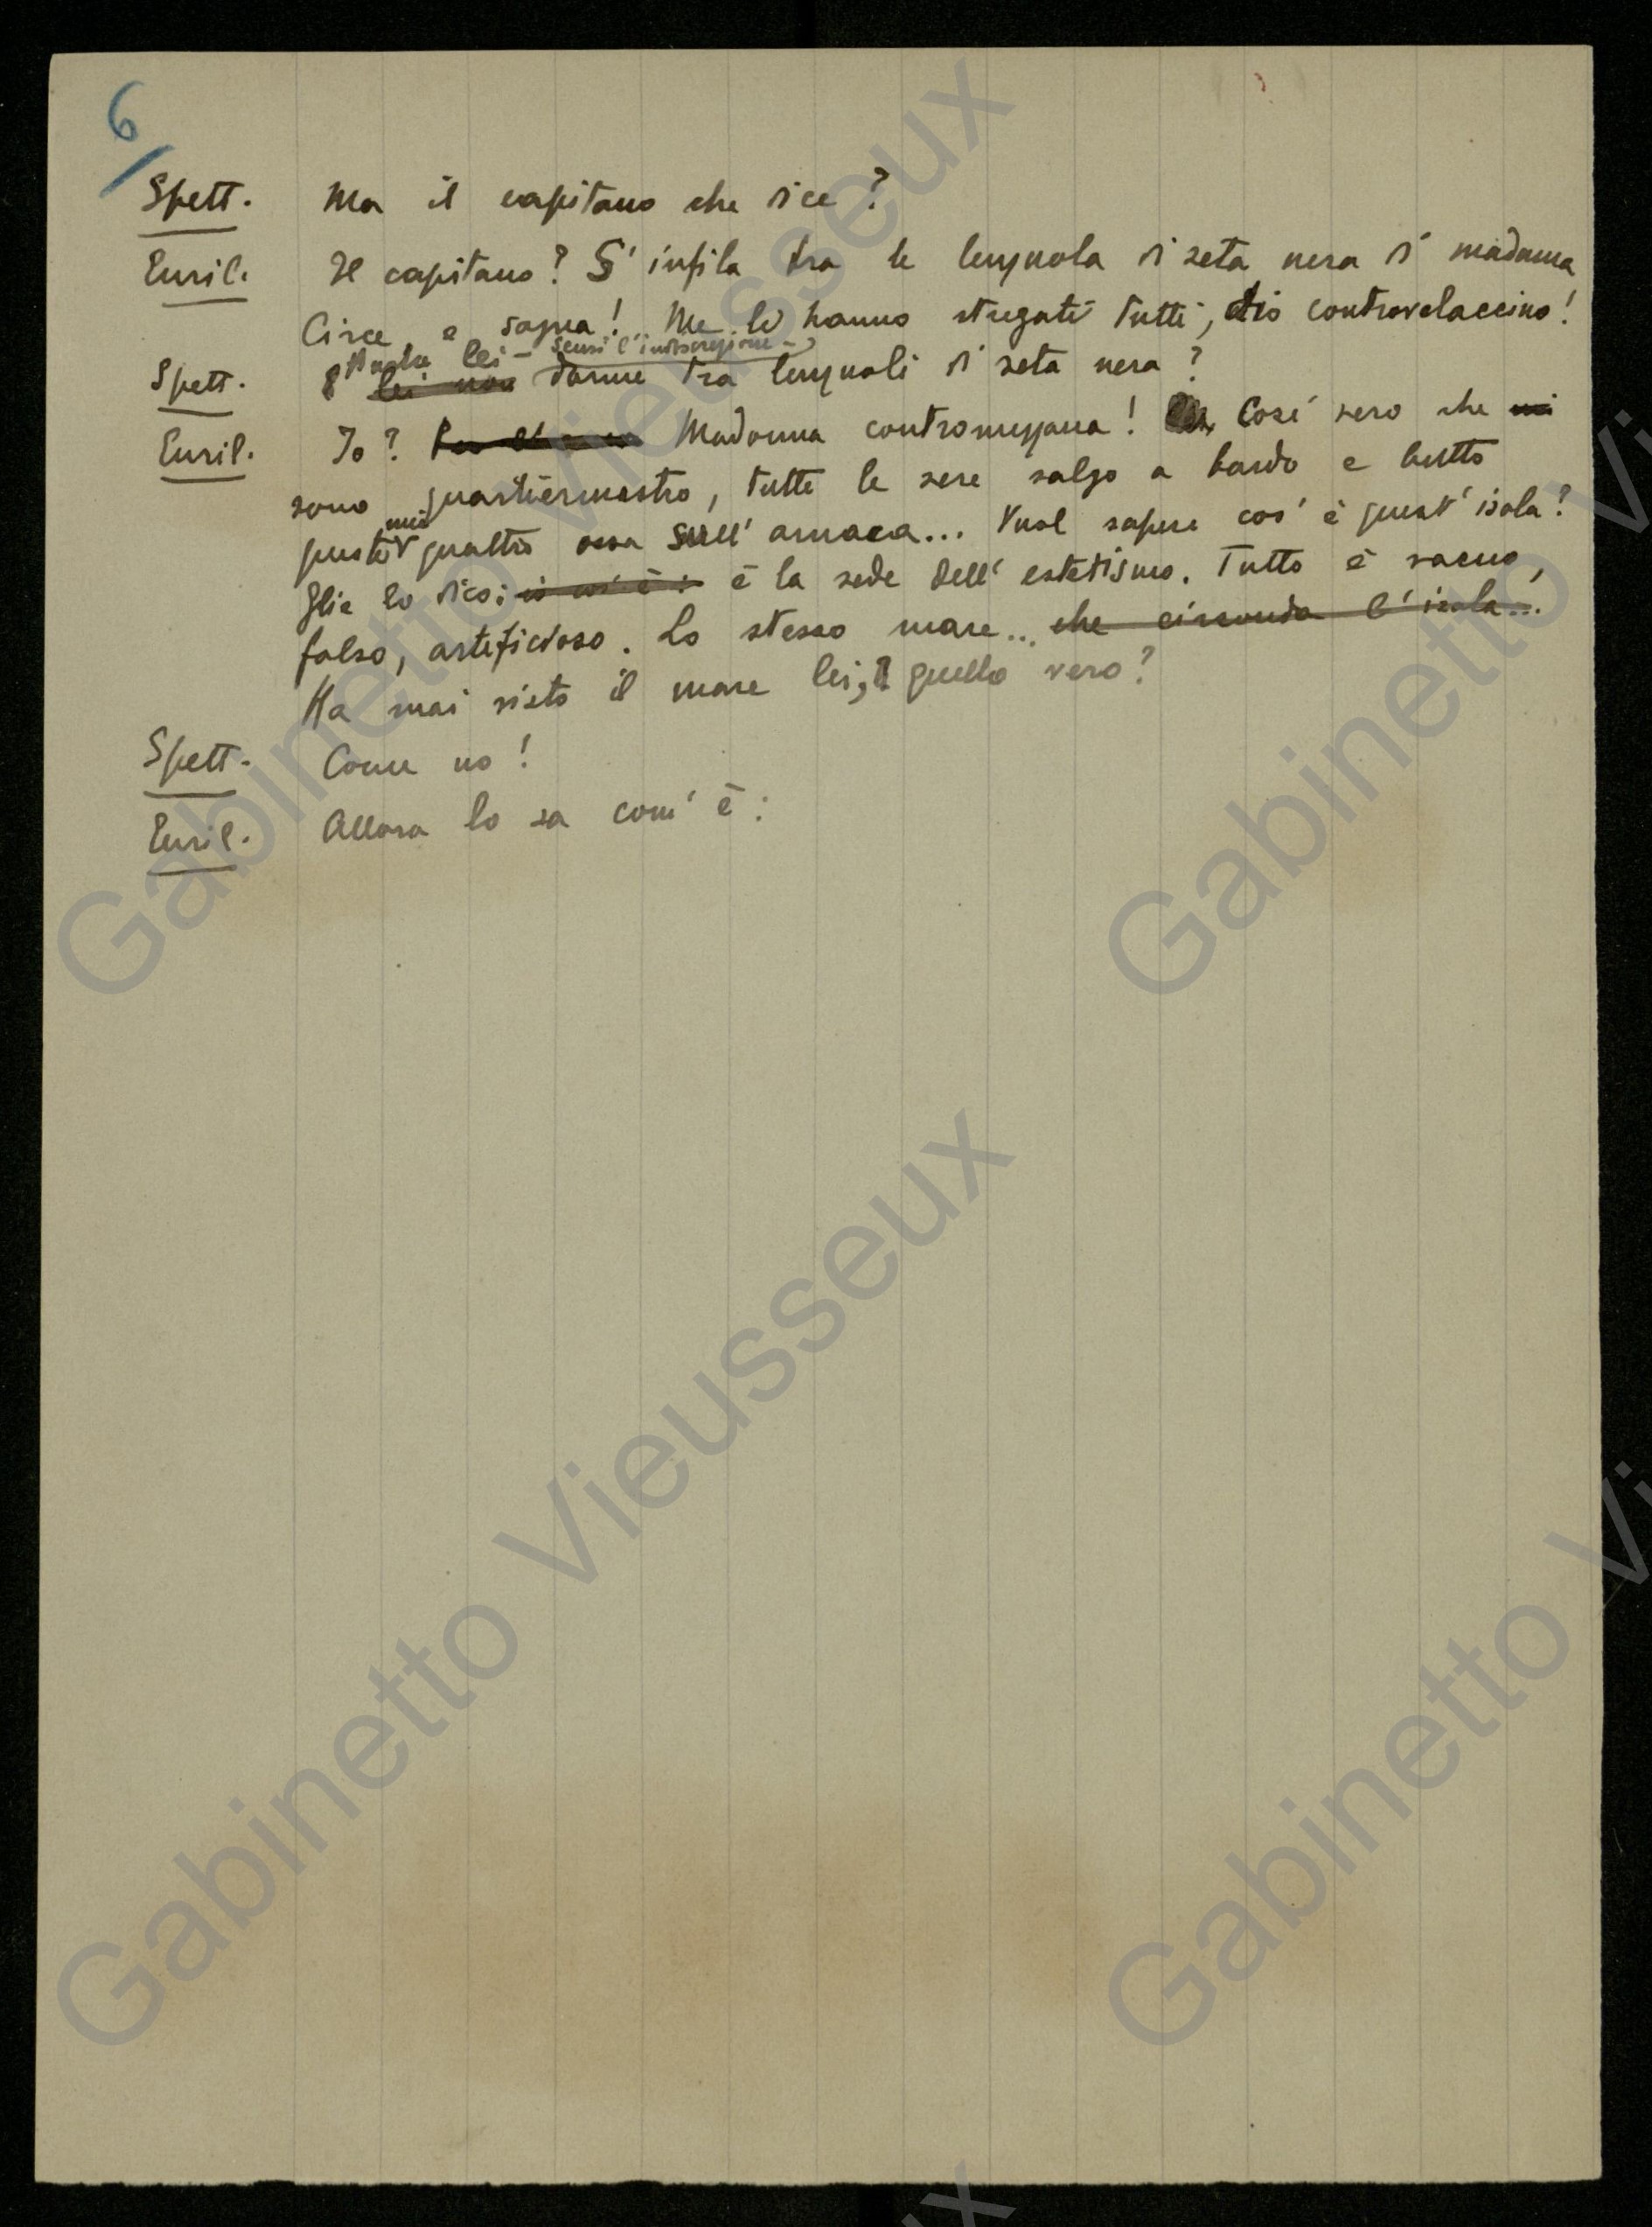 6/
Spett. Ma il capitano che dice?
Euril. Il capitano? S'infila tra le lenzuola di seta nera di madama
Circe e sogna!.. Me li hanno stregati tutti, dio controvelaccino!
Anche lei – scusi l'indiscrezione –,
Spett. E lei non dorme tra lenzuoli di seta nera?
Euril. Io? Madonna contromezzana! Così vero che mi
sono quartiermastro, tutte le sere salgo a bordo e butto
mie
queste quattro ossa sull'amaca... Vuol sapere cos'è quest'isola?
Glie lo dico: io cos'è: è la sede dell'estetismo. Tutto è vacuo,
falso, artificioso. Lo stesso mare... che circonda l'isola...
Ha mai visto il mare lei, quello vero?
Spett. Come no!
Euril. Allora lo sa com'è:
Gabinetto Vieusseux
Gabinetto Vieusseux
Gabinetto Vieusseux
Gabinetto Vieusseux